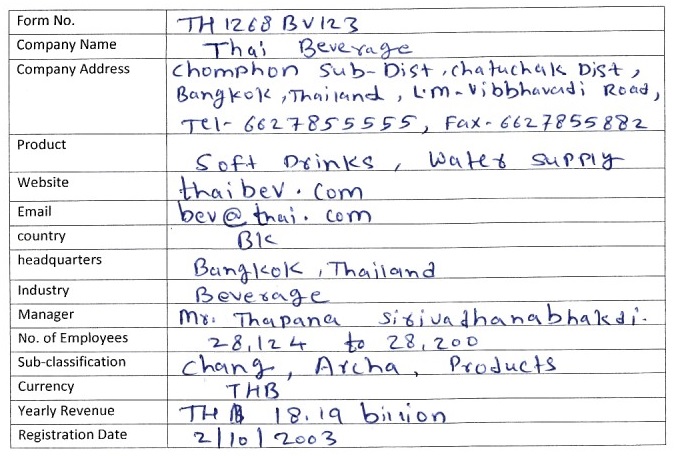 Form No. TH 1268 BV123
Company Name Thai Beverage
Company Address Chomphon Sub-Dist, chatuchak Dist,
Bangkok, Thailand, L.M-Vibbhavadi Road,
Tel- 6627855555, Fax- 6627855882
Product
Soft Drinks, Water supply
Website thaibev.com
Email bev@thai.com
country BK
headquarters Bangkok, Thailand
Industry Beverage
Manager Mr. Thapana Sirivadhanabhakdi.
No. of Employees 28,124 to 28,200
Sub-classification Chang, Archa, Products
Currency THB
Yearly Revenue THB 18.19 billion
Registration Date 2/10/2003